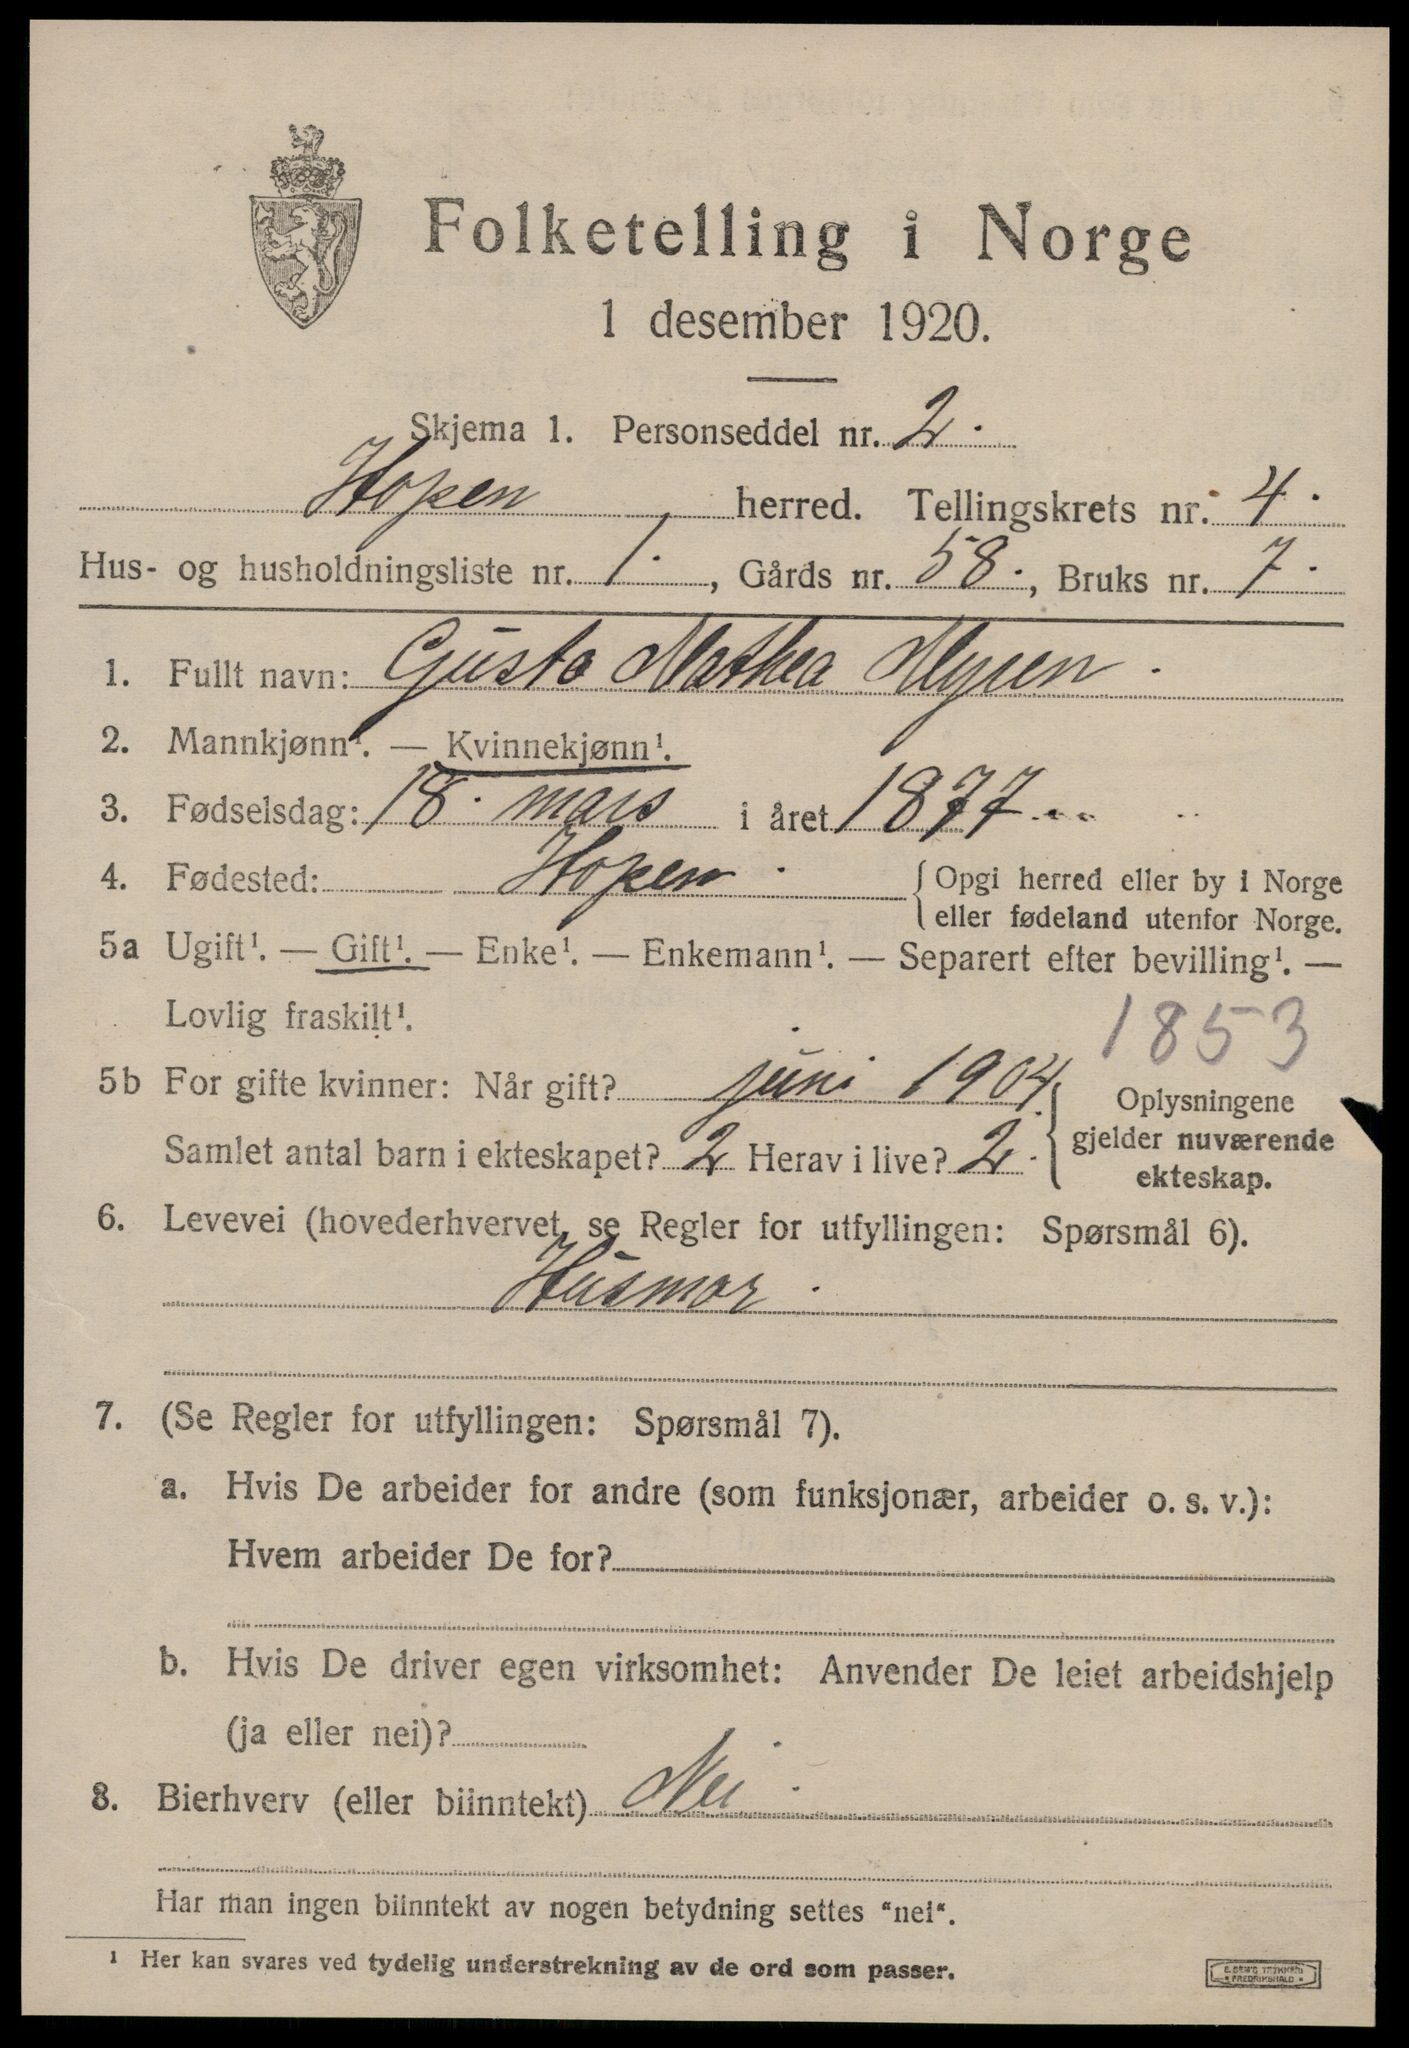 Folketelling i Norge
1 desember 1920.
Skjema 1. Personseddel nr. 2.
Hopen herred. Tellingskrets nr. 4.
Hus- og husholdningsliste nr. 1., Gårds nr. 58., Bruks nr. 7.
1. Fullt navn: Gusta Mathea Myren.
2. Mannkjønn¹. — Kvinnekjønn¹.
3. Fødselsdag: 18. mars i året 1877
4. Fødested: Hopen. { Opgi herred eller by i Norge
eller fødeland utenfor Norge.
5a Ugift¹. — Gift¹. — Enke¹. — Enkemann¹. — Separert efter bevilling¹. —
Lovlig fraskilt¹.
1853
5b For gifte kvinner: Når gift? juni 1904. { Oplysningene
gjelder nuværende
ekteskap.
Samlet antal barn i ekteskapet? 2 Herav i live? 2.
6. Levevei (hovederhvervet, se Regler for utfyllingen: Spørsmål 6).
Husmor.
7. (Se Regler for utfyllingen: Spørsmål 7).
a. Hvis De arbeider for andre (som funksjonær, arbeider o. s. v.):
Hvem arbeider De for?
b. Hvis De driver egen virksomhet: Anvender De leiet arbeidshjelp
(ja eller nei)?
8. Bierhverv (eller biinntekt) Nei.
Har man ingen biinntekt av nogen betydning settes "nei".
¹ Her kan svares ved tydelig understrekning av de ord som passer.
FREDRIKSHALD